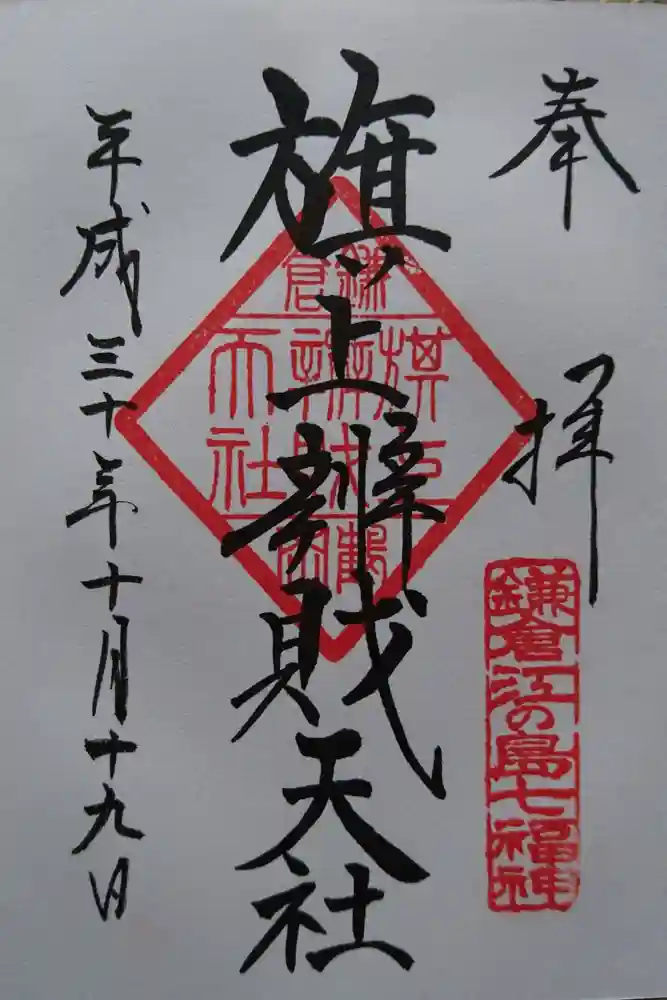 奉拝
鎌倉江の島七福神
旗上辨財天社
鎌倉
旗上
辨財
天社
鶴
平成三十年十月十九日